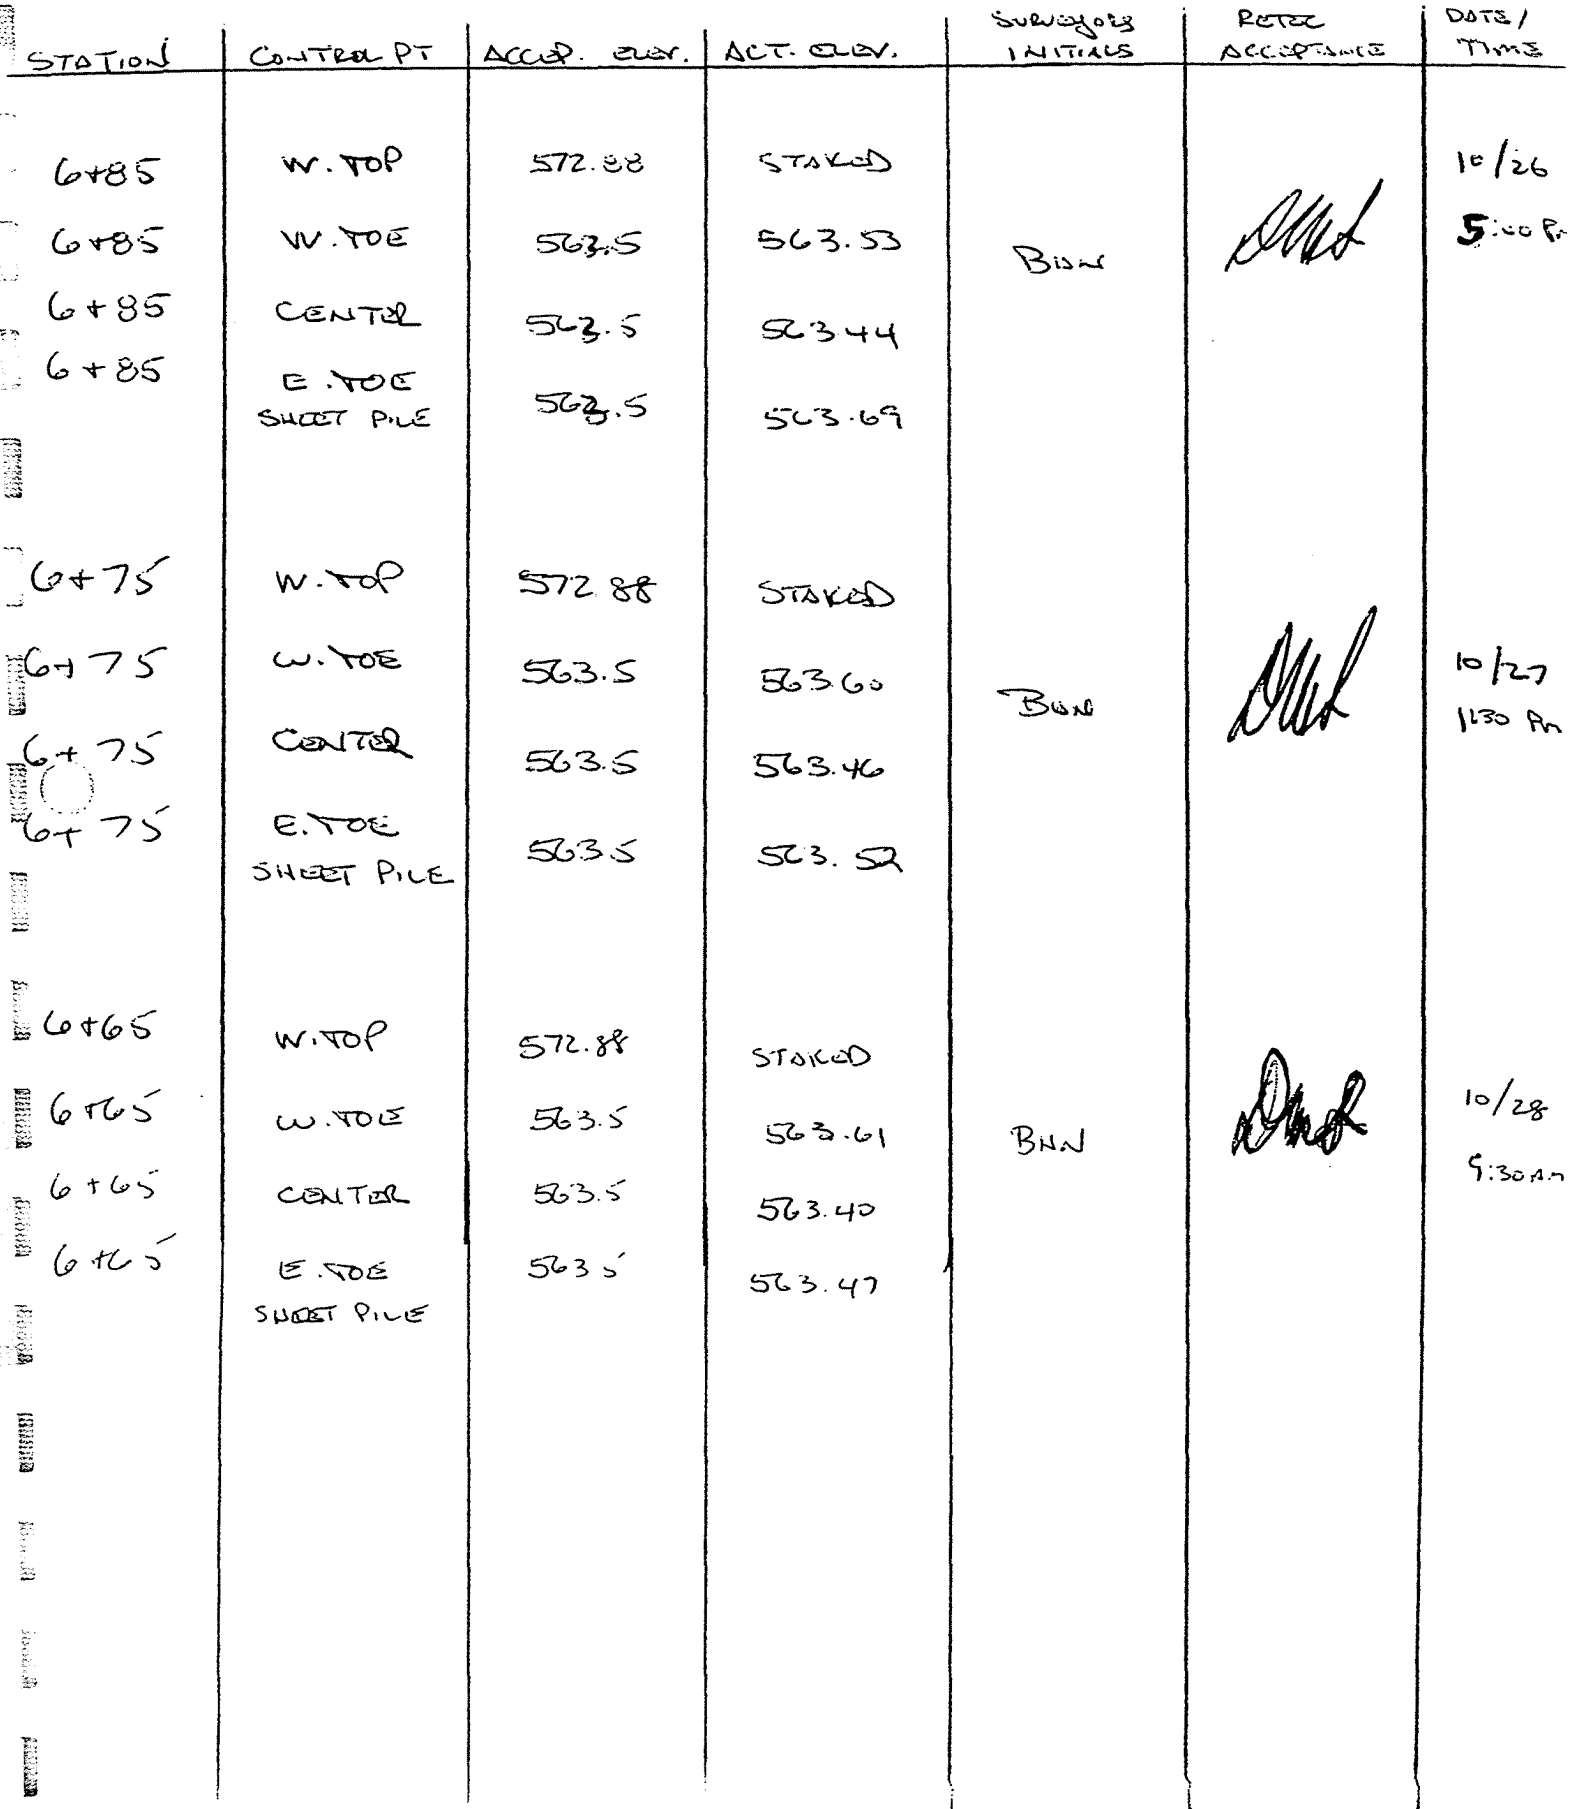 STATION CONTROL PT ACCEP. ELEV. ACT. ELEV. SURVEYORS INITIALS RETEC ACCEPTANCE DATE/ TIME
6+85 W. TOP 572.88 STAKED 10/26
6+85 W. TOE 563.5 563.53 5:00 Pm
6+85 CENTER 563.5 563.44
6+85 E. TOE 563.5 563.69
SHEET PILE
6+75 W. TOP 572.88 STAKED
6+75 W. TOE 563.5 563.60 10/27
1:30 Pm
6+75 CENTER 563.5 563.46
6+75 E. TOE 563.5 563.52
SHEET PILE
6+65 W. TOP 572.88 STAKED
6+65 W. TOE 563.5 563.61 BNN 10/28
9:30 Am
6+65 CENTER 563.5 563.40
6+65 E. TOE 563.5 563.47
SHEET PILE